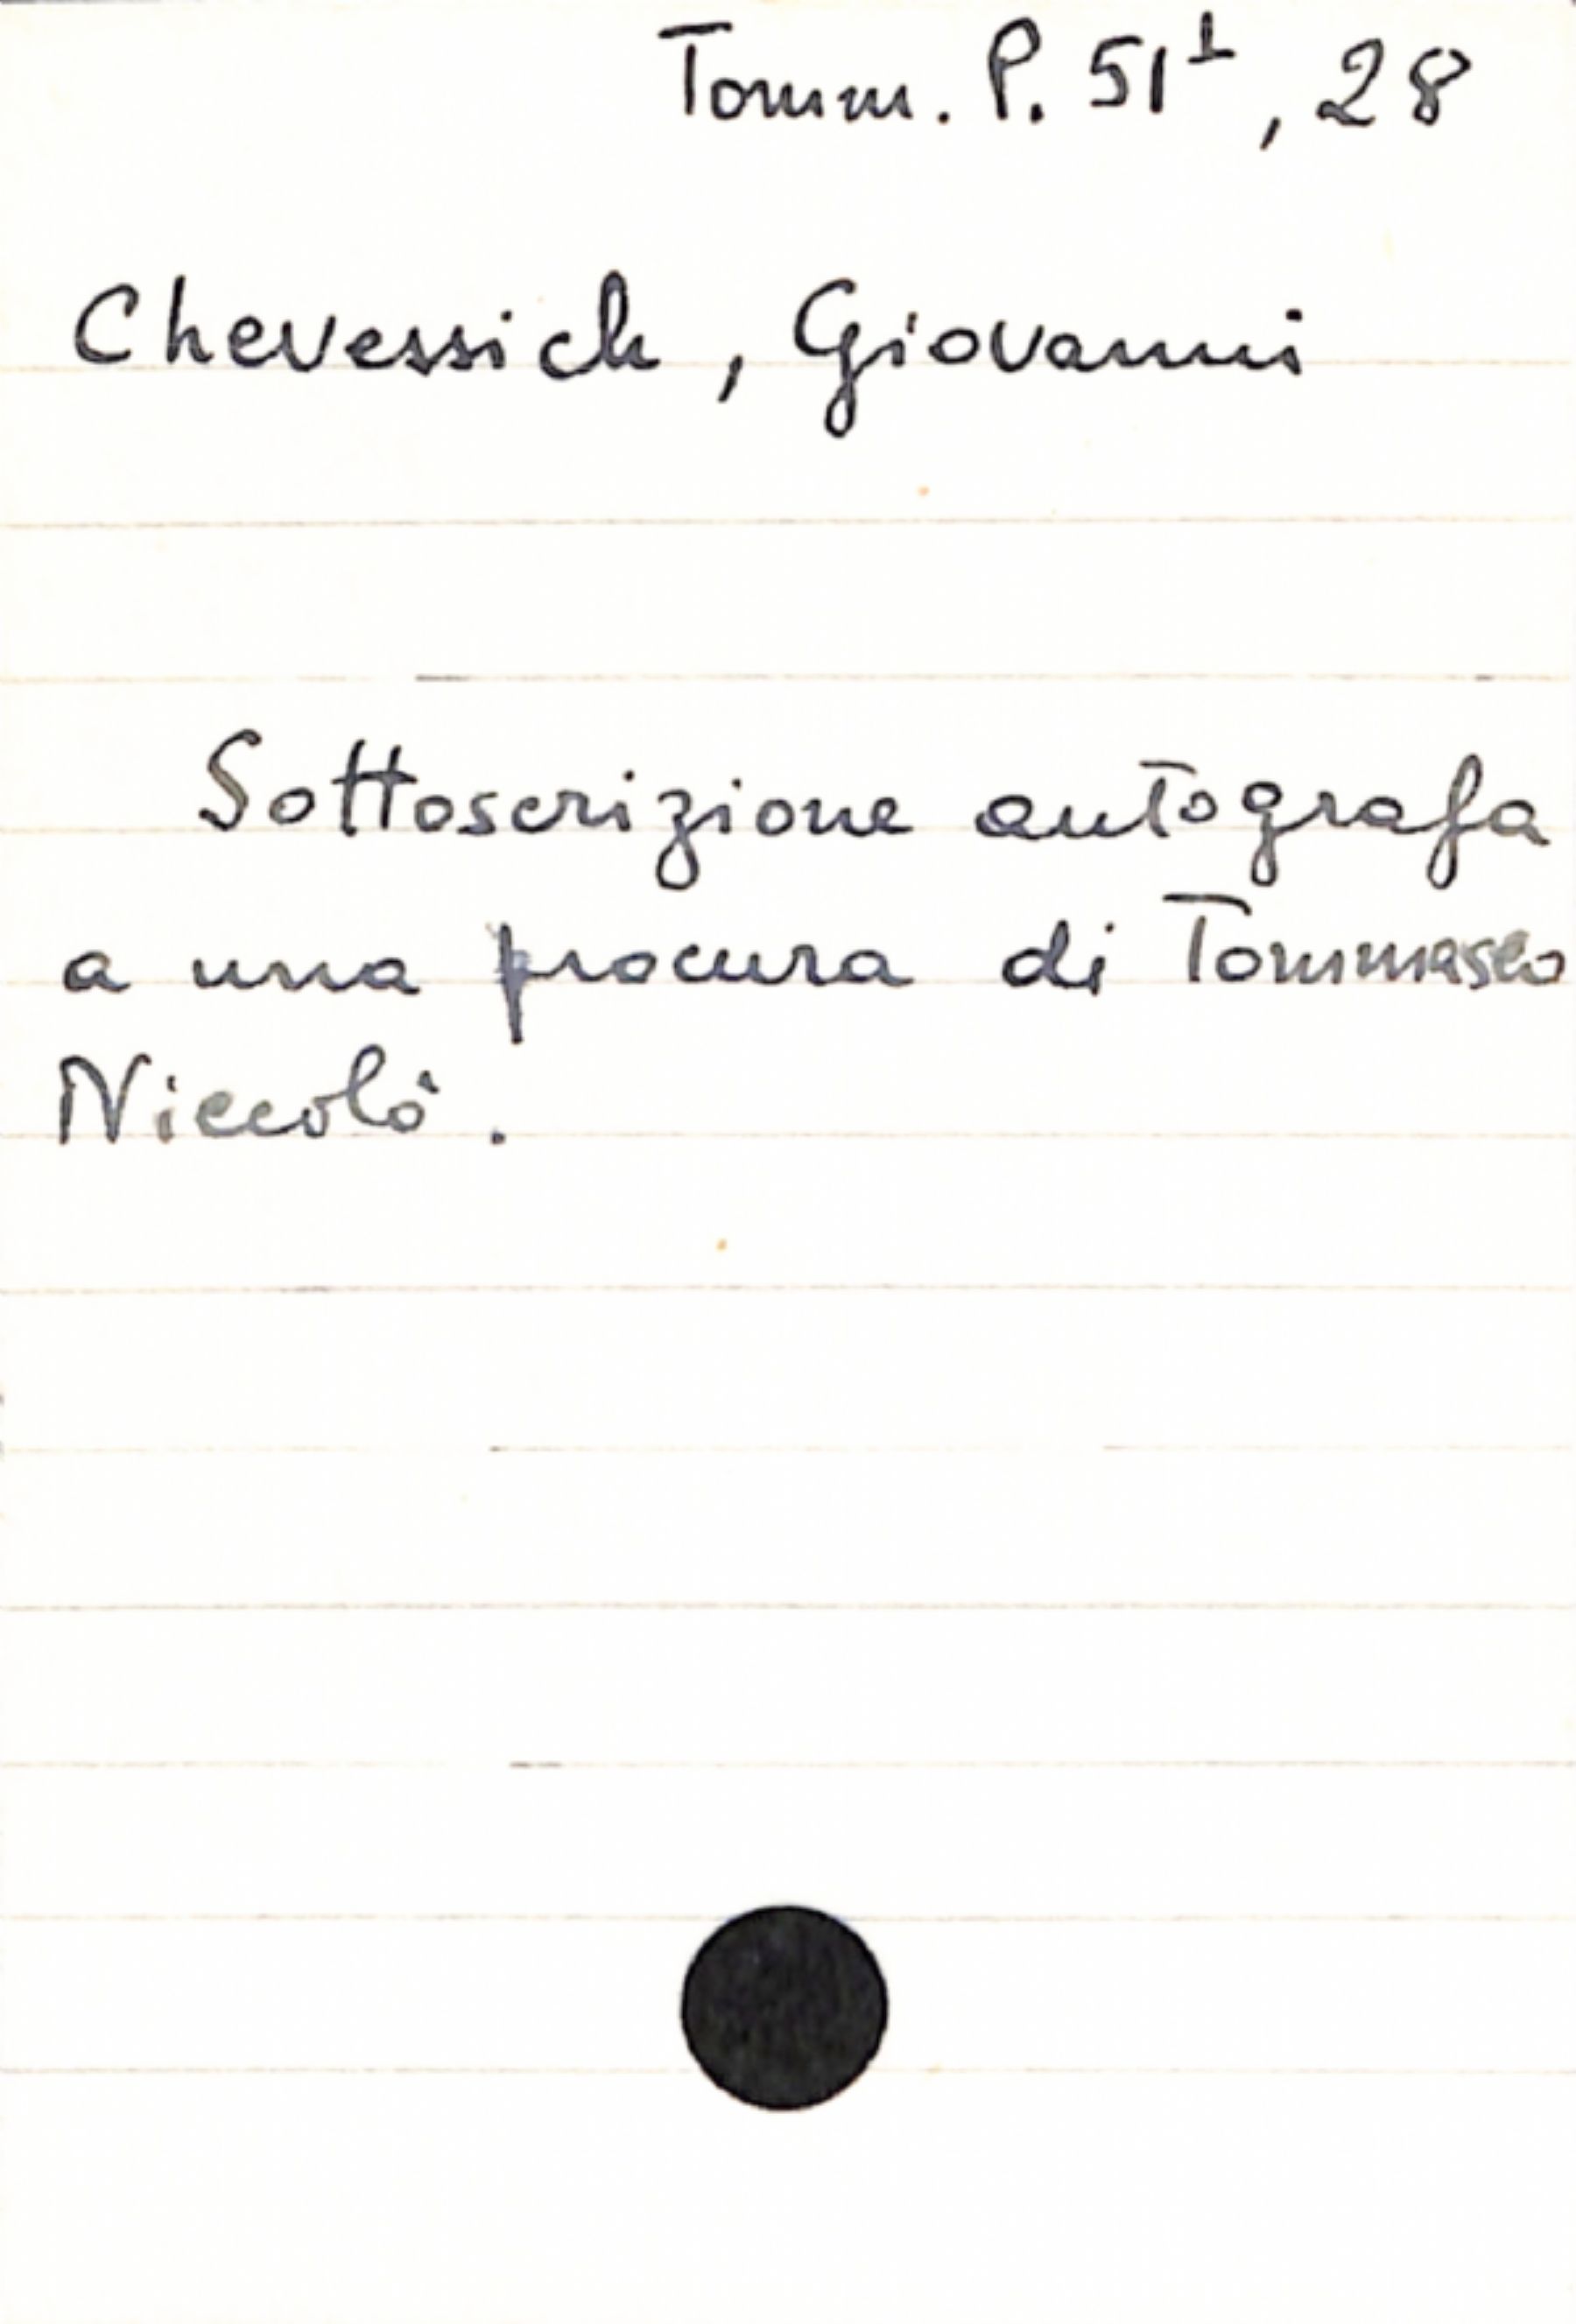 Tomm. P. 51¹, 28
Chevessich, Giovanni
Sottoscrizione autografa
a una procura di Tommaseo
Niccolò.